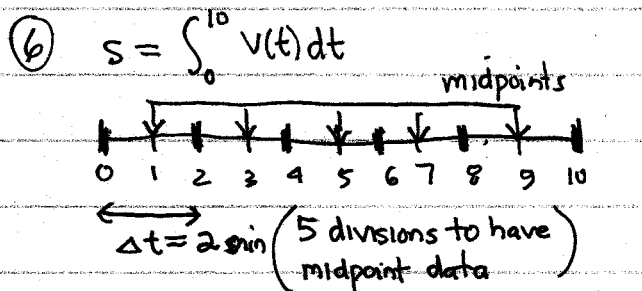 ⑥ s = ∫₀¹⁰ v(t) dt
midpoints
0 1 2 3 4 5 6 7 8 9 10
Δt = 2 min (5 divisions to have
midpoint data)